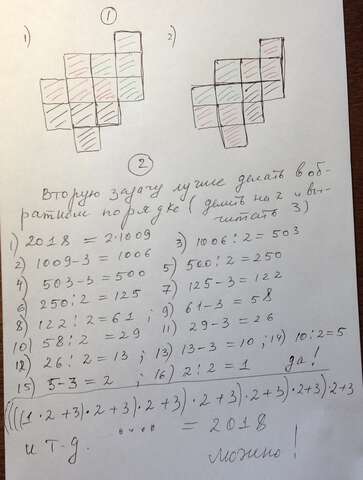 ①
1) 2)
②
Вторую задачу лучше делать в об-
ратном порядке (делить на 2 и вы-
читать 3)
1) 2018 = 2·1009
2) 1009-3 = 1006 3) 1006:2 = 503
4) 503-3 = 500 5) 500:2 = 250
6) 250:2 = 125 7) 125-3 = 122
8) 122:2 = 61; 9) 61-3 = 58
10) 58:2 = 29 11) 29-3 = 26
12) 26:2 = 13; 13) 13-3 = 10; 14) 10:2=5
15) 5-3 = 2; 16) 2:2 = 1 да!
((((1·2+3)·2+3)·2+3)·2+3)·2+3)·2+3)·2+3
и т.д. .... = 2018
можно!